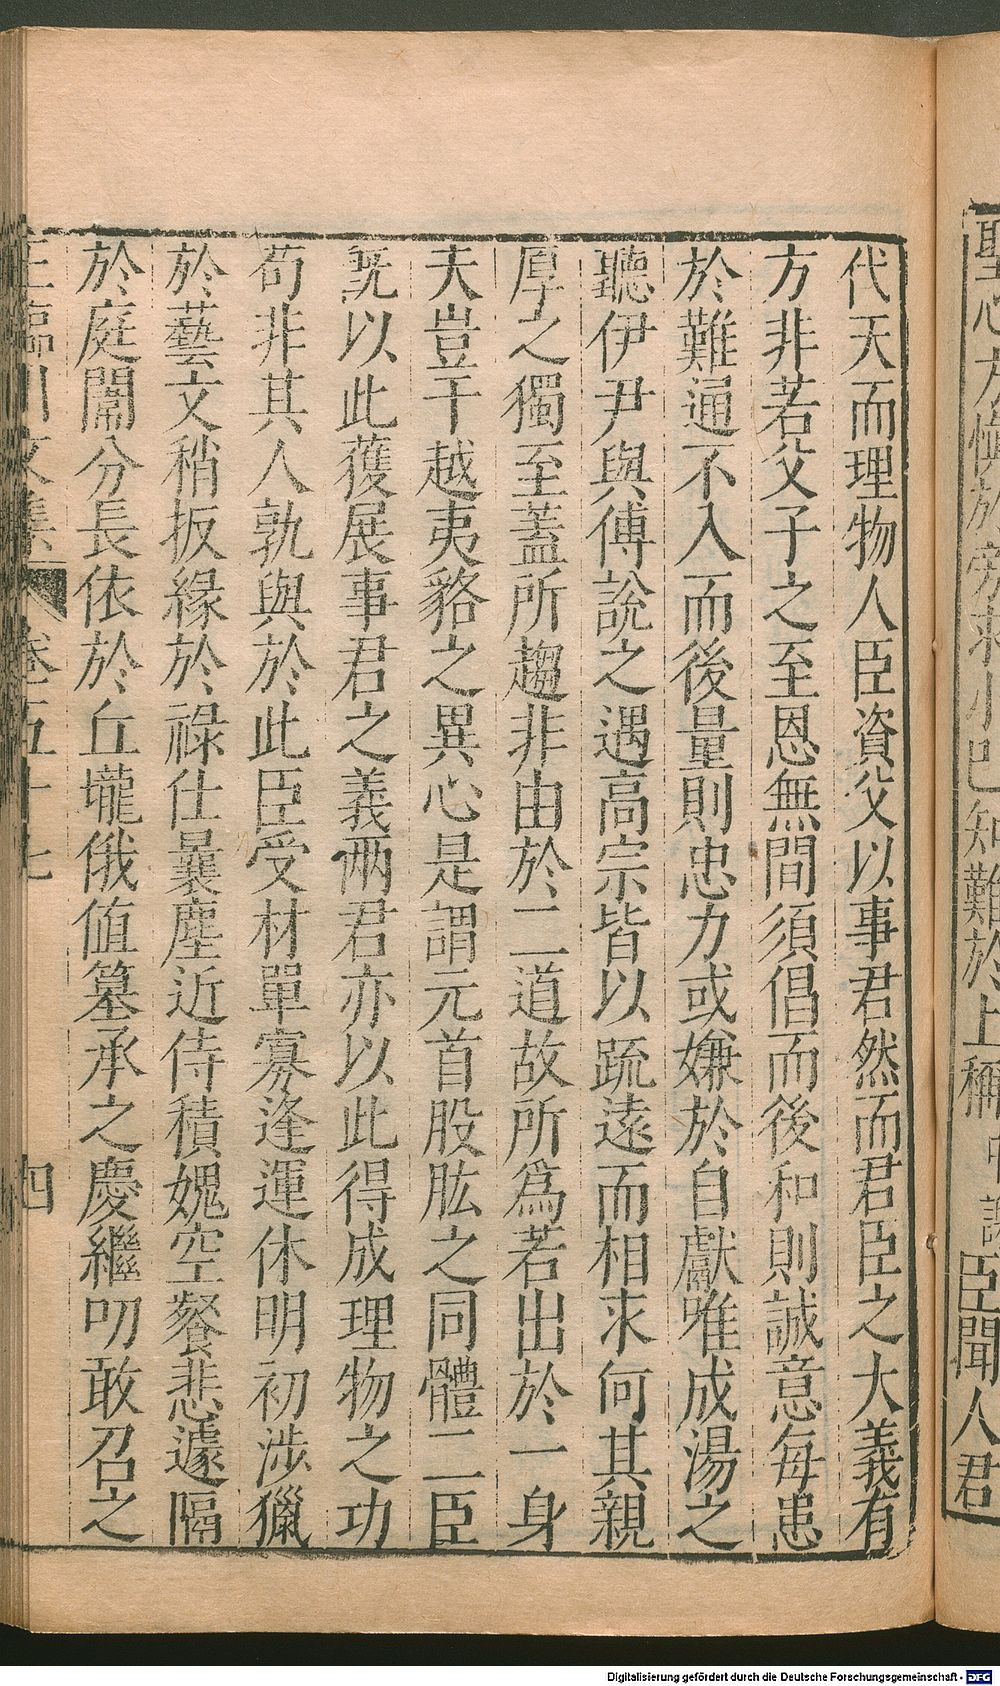 聖心方慎於旁求小己知難於上稱 中謝 臣聞人君
代天而理物人臣資父以事君然而君臣之大義有
方非若父子之至恩無間須倡而後和則誠意每患
於難通不入而後量則忠力或嫌於自獻唯成湯之
聽伊尹與傅說之遇高宗皆以疏遠而相求何其親
厚之獨至蓋所趨非由於二道故所爲若出於一身
夫豈干越夷貉之異心是謂元首股肱之同體二臣
旣以此獲展事君之義兩君亦以此得成理物之功
苟非其人孰與於此臣受材單寡逢運休明初涉獵
於藝文稍扳緣於祿仕曩塵近侍積媿空餐悲遽隔
於庭闈分長依於丘壠俄値墓承之慶繼叨敢召之
王臨川文集 卷五十七 四
Digitalisierung gefördert durch die Deutsche Forschungsgemeinschaft - DFG